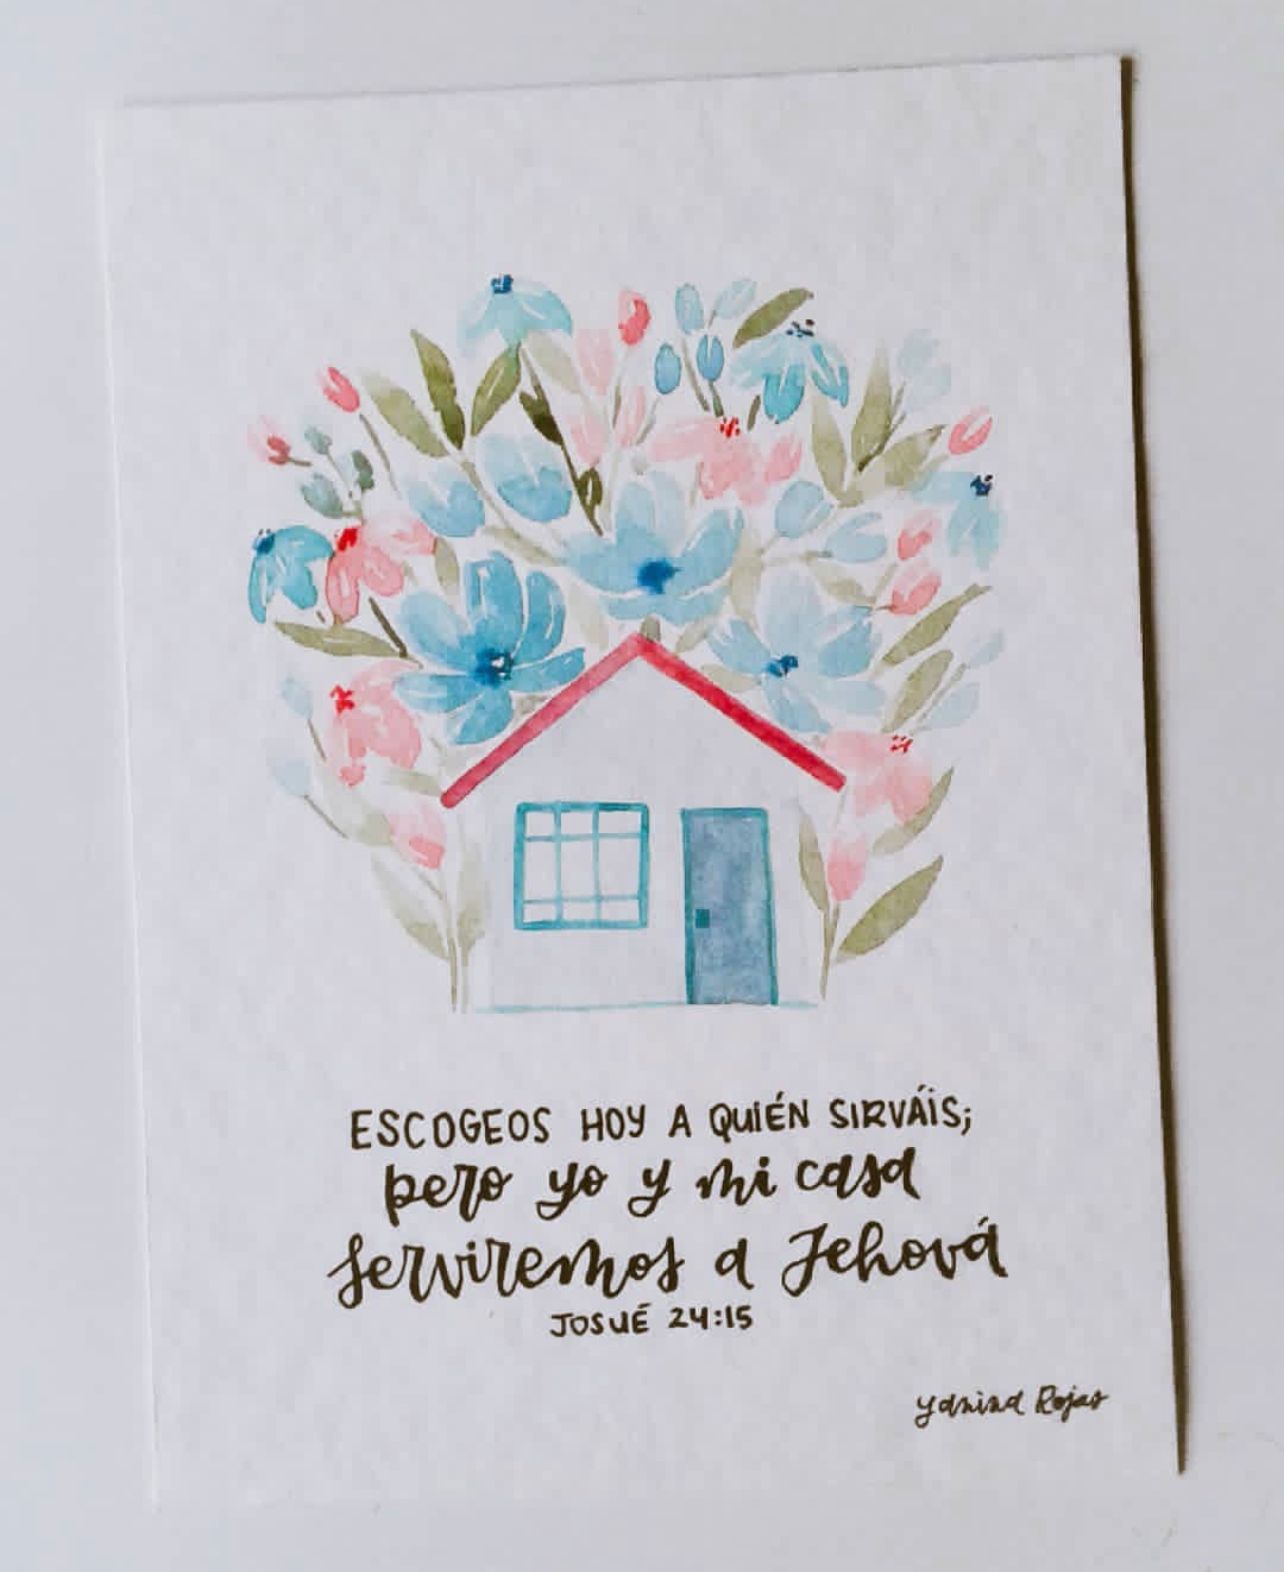 ESCOGEOS HOY A QUIÉN SIRVÁIS;
pero yo y mi casa
serviremos a Jehová
JOSUÉ 24:15
Yanina Rojas